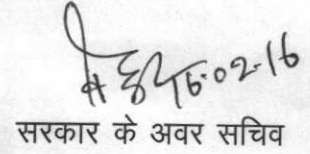 16.02.16
सरकार के अवर सचिव